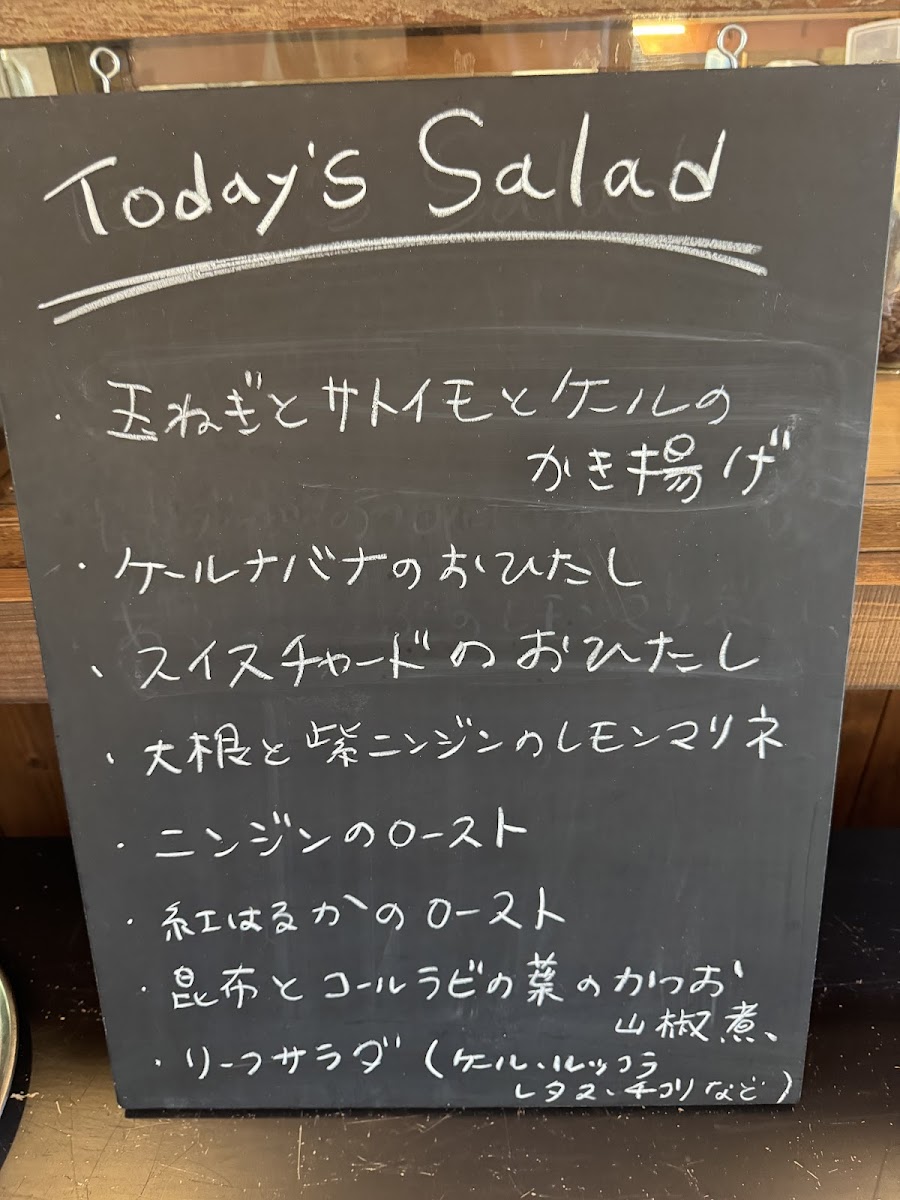 Today's Salad
・玉ねぎとサトイモとケールの
かき揚げ
・ケールナバナのおひたし
・スイスチャードのおひたし
・大根と紫ニンジンのレモンマリネ
・ニンジンのロースト
・紅はるかのロースト
・昆布とコールラビの葉のかつお
山椒煮
・リーフサラダ(ケール、ルッコラ
レタス、チコリなど)